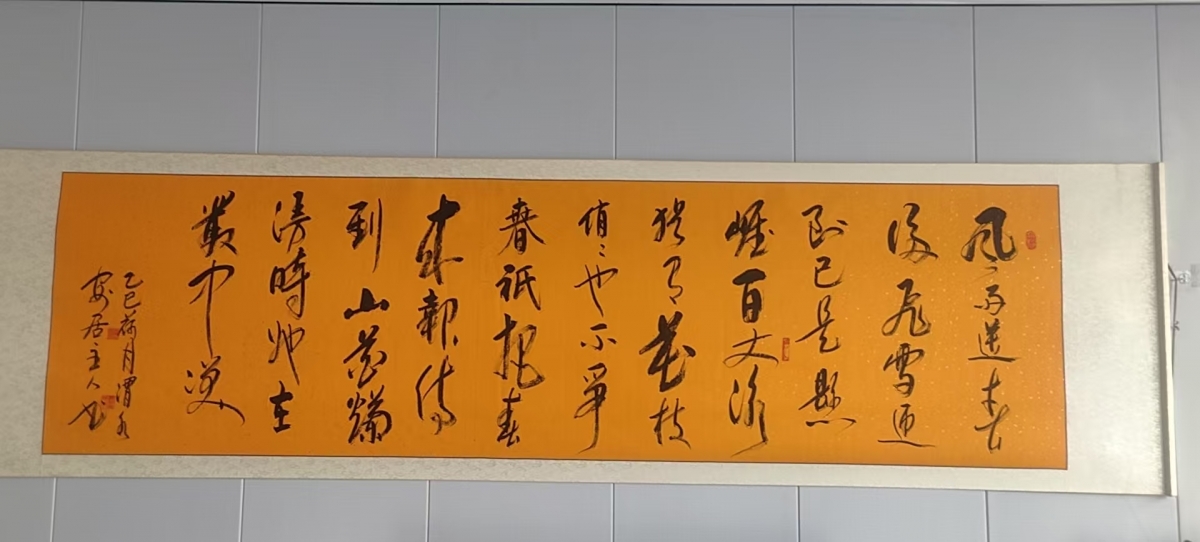 风雨送春
归飛雪迎
到已是懸
崖百丈冰
犹有花枝
俏〻也不爭
春祇把春
来報待
到山花爛
漫時她在
叢中笑
乙巳荷月渭水
安居主人书